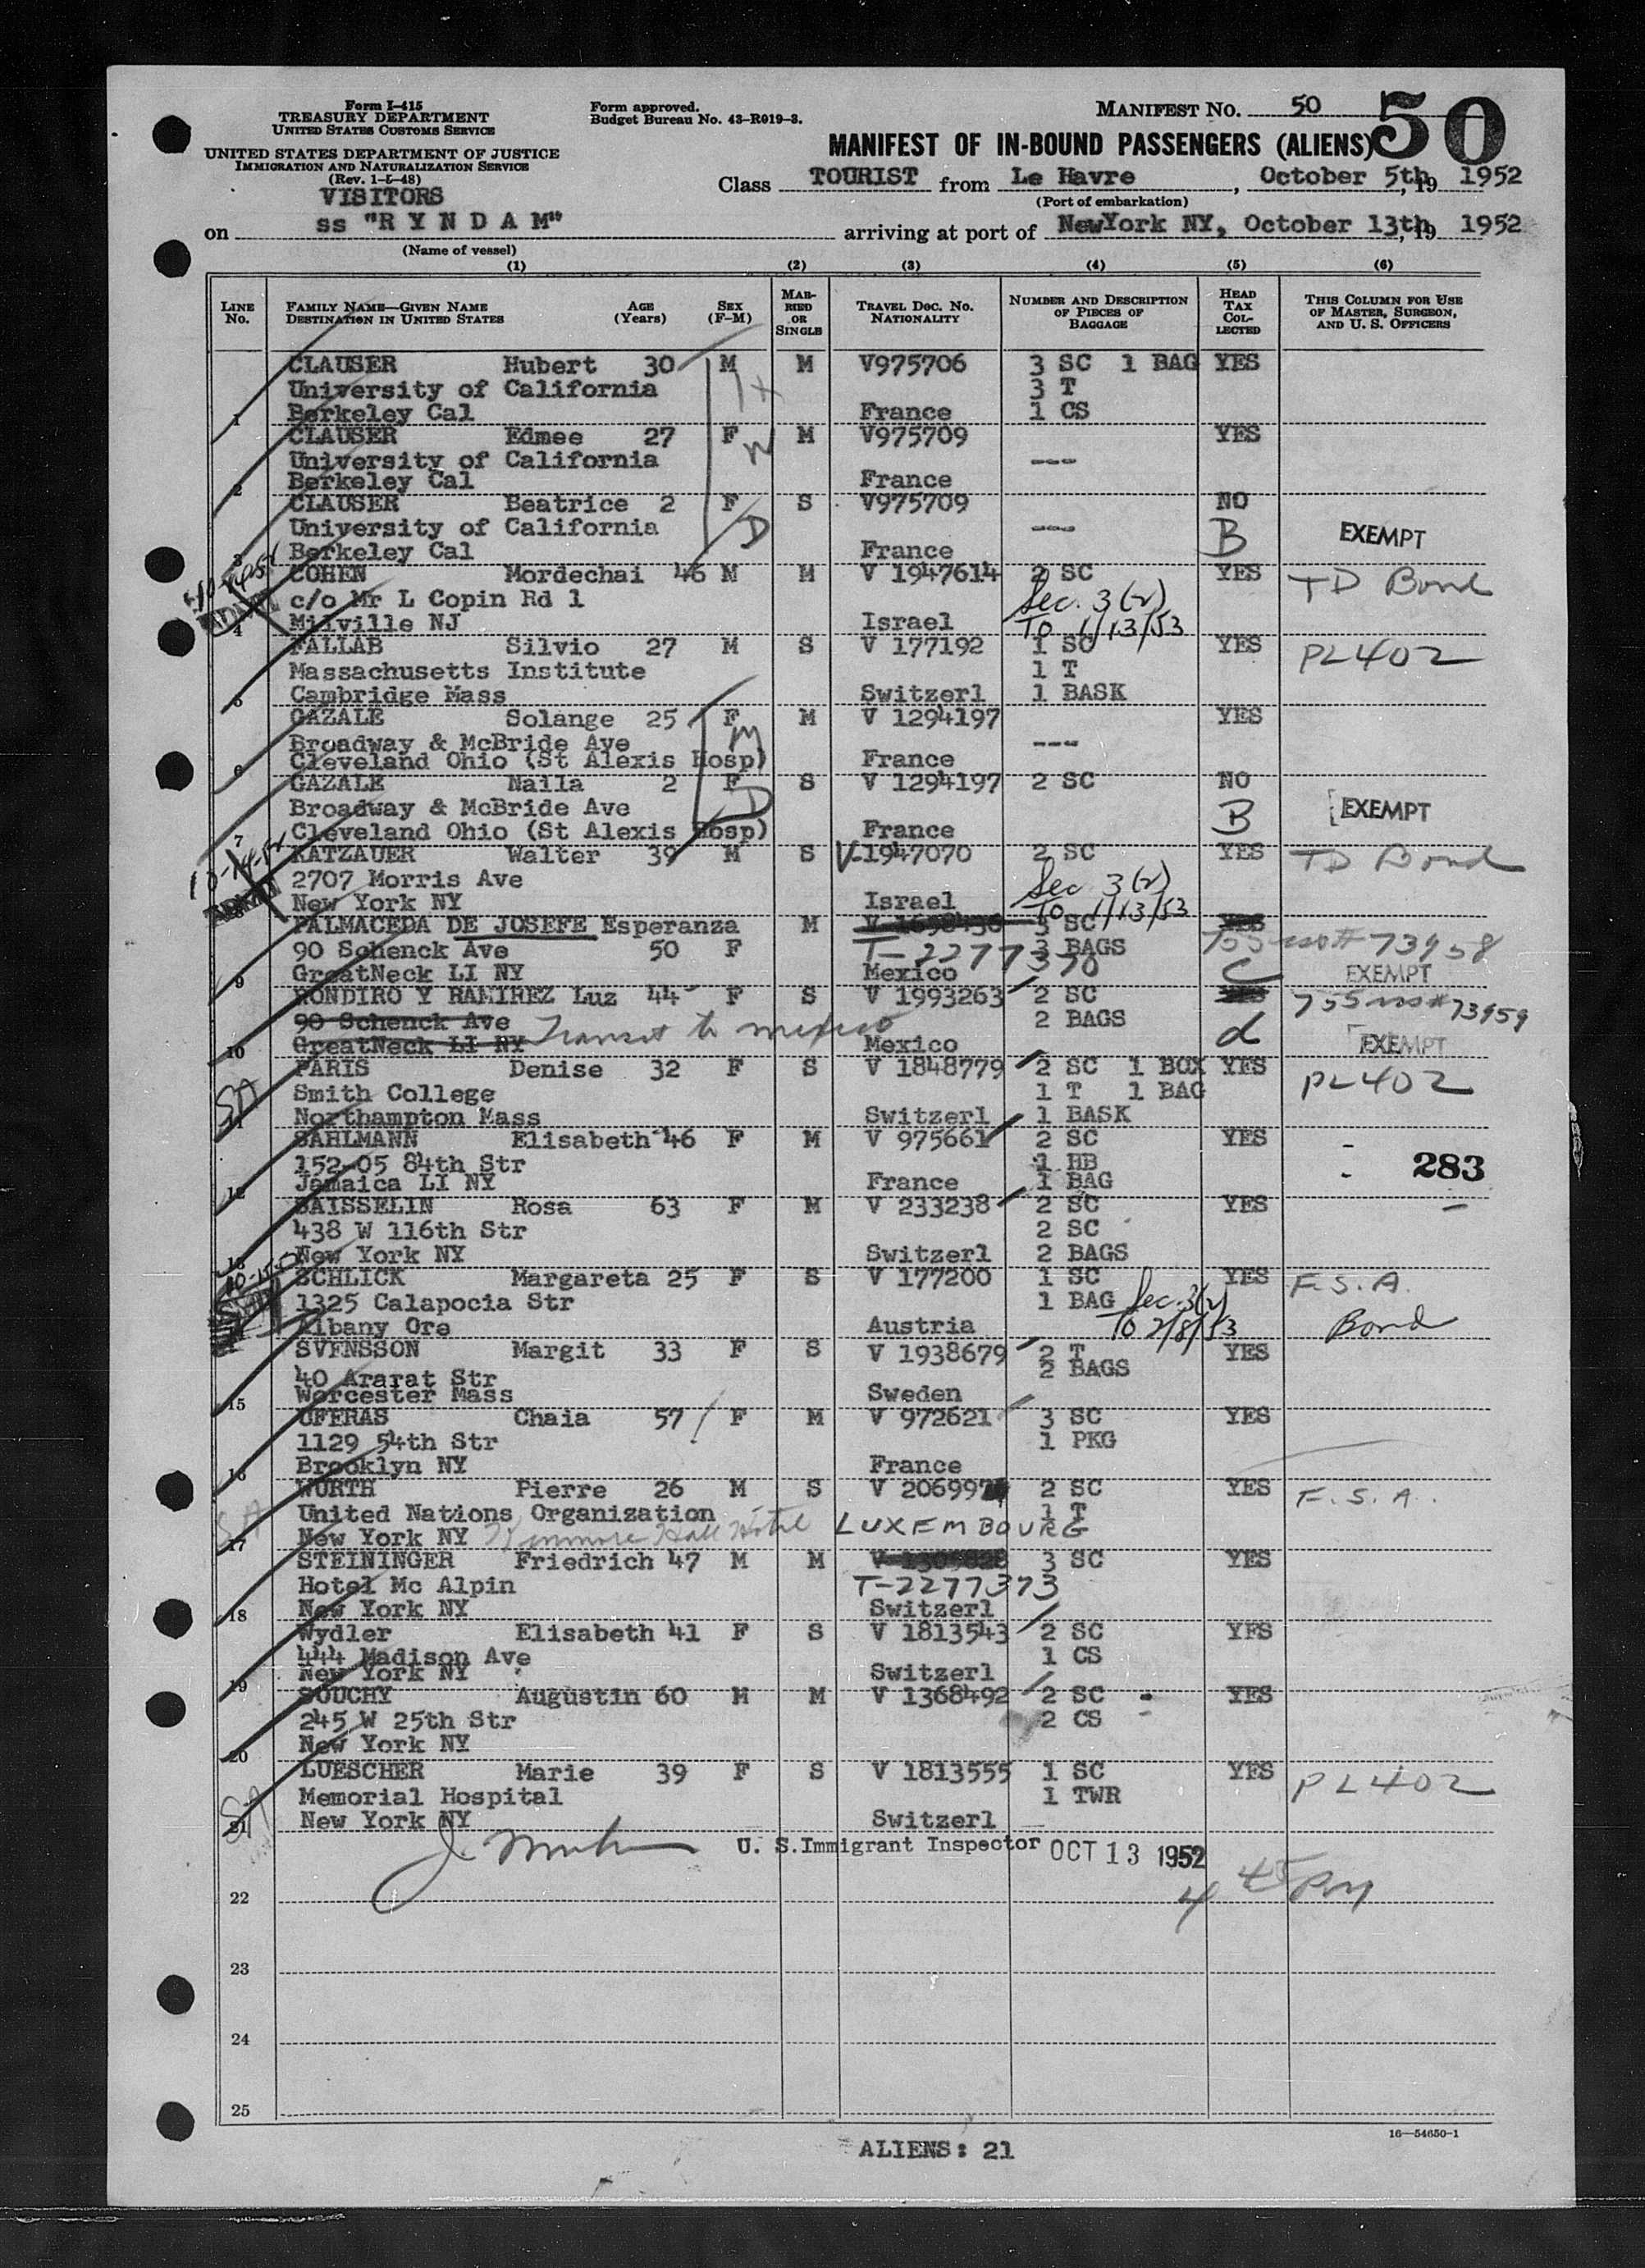 Form I-415
TREASURY DEPARTMENT
UNITED STATES CUSTOMS SERVICE
UNITED STATES DEPARTMENT OF JUSTICE
IMMIGRATION AND NATURALIZATION SERVICE
(Rev. 1-5-48)
VISITORS
Form approved.
Budget Bureau No. 43-R019-3.
MANIFEST NO. 50
50
MANIFEST OF IN-BOUND PASSENGERS (ALIENS)
Class TOURIST from Le Havre, October 5th, 19 1952
(Port of embarkation)
on ss "R Y N D A M" arriving at port of NewYork NY, October 13th, 19 1952
(Name of vessel)
(1) (2) (3) (4) (5) (6)
LINE No. FAMILY NAME—GIVEN NAME DESTINATION IN UNITED STATES AGE (Years) SEX (F-M) MARRIED OR SINGLE TRAVEL DOC. NO. NATIONALITY NUMBER AND DESCRIPTION OF PIECES OF BAGGAGE HEAD TAX COLLECTED THIS COLUMN FOR USE OF MASTER, SURGEON, AND U. S. OFFICERS
CLAUSER Hubert 30 M M V975706 3 SC 1 BAG YES
University of California 3 T
1 Berkeley Cal France 1 CS
CLAUSER Edmee 27 F M V975709 YES
University of California ---
2 Berkeley Cal France
CLAUSER Beatrice 2 F S V975709 NO
University of California --- B EXEMPT
3 Berkeley Cal D France
COHEN Mordechai 46 M M V 1947614 2 SC YES TD Bond
c/o Mr L Copin Rd 1 Sec. 3(2)
4 Millville NJ Israel To 1/13/53
FALLAB Silvio 27 M S V 177192 1 SC YES PL402
Massachusetts Institute 1 T
5 Cambridge Mass Switzerl 1 BASK
GAZALE Solange 25 F M V 1294197 YES
Broadway & McBride Ave M ---
6 Cleveland Ohio (St Alexis Hosp) France
GAZALE Naila 2 F S V 1294197 2 SC NO
Broadway & McBride Ave D B EXEMPT
7 Cleveland Ohio (St Alexis Hosp) France
KATZAUER Walter 39 M S V-1947070 2 SC YES TD Bond
2707 Morris Ave Sec 3(2)
8 New York NY Israel To 1/13/53
PALMACEDA DE JOSEFE Esperanza M V 1698436 3 SC YES
90 Schenck Ave 50 F T-2277370 3 BAGS 73958
9 GreatNeck LI NY Mexico C EXEMPT
RONDIRO Y RAMIREZ Luz 44 F S V 1993263 2 SC YES 73959
90 Schenck Ave Transit to mexico 2 BAGS d
10 GreatNeck LI NY Mexico EXEMPT
PARIS Denise 32 F S V 1848779 2 SC 1 BOX YES PL402
SA Smith College 1 T 1 BAG
11 Northampton Mass Switzerl 1 BASK
SAHLMANN Elisabeth 46 F M V 975661 2 SC YES
152-05 84th Str 1 HB 283
12 Jamaica LI NY France 1 BAG
BAISSELIN Rosa 63 F M V 233238 2 SC YES
438 W 116th Str 2 SC
13 New York NY Switzerl 2 BAGS
SCHLICK Margareta 25 F S V 177200 1 SC YES F.S.A.
1325 Calapocia Str 1 BAG Sec. 3(2) Bond
Albany Ore Austria To 2/8/53
SVENSSON Margit 33 F S V 1938679 2 T YES
40 Ararat Str 2 BAGS
15 Worcester Mass Sweden
UFERAS Chaia 57 F M V 972621 3 SC YES
1129 54th Str 1 PKG
16 Brooklyn NY France
WURTH Pierre 26 M S V 20699 2 SC YES F.S.A.
SA United Nations Organization 1 T
17 New York NY Hall Hotel LUXEMBOURG
STEININGER Friedrich 47 M M 3 SC YES
Hotel Mc Alpin T-2277373
18 New York NY Switzerl
Wydler Elisabeth 41 F S V 1813543 2 SC YES
444 Madison Ave 1 CS
19 New York NY Switzerl
SOUCHY Augustin 60 M M V 1368492 2 SC YES
245 W 25th Str 2 CS
20 New York NY
LUESCHER Marie 39 F S V 1813555 1 SC YES PL402
SA Memorial Hospital 1 TWR
21 New York NY Switzerl
U. S.Immigrant Inspector OCT 13 1952
4 45 PM
22
23
24
25
16—54650-1
ALIENS: 21